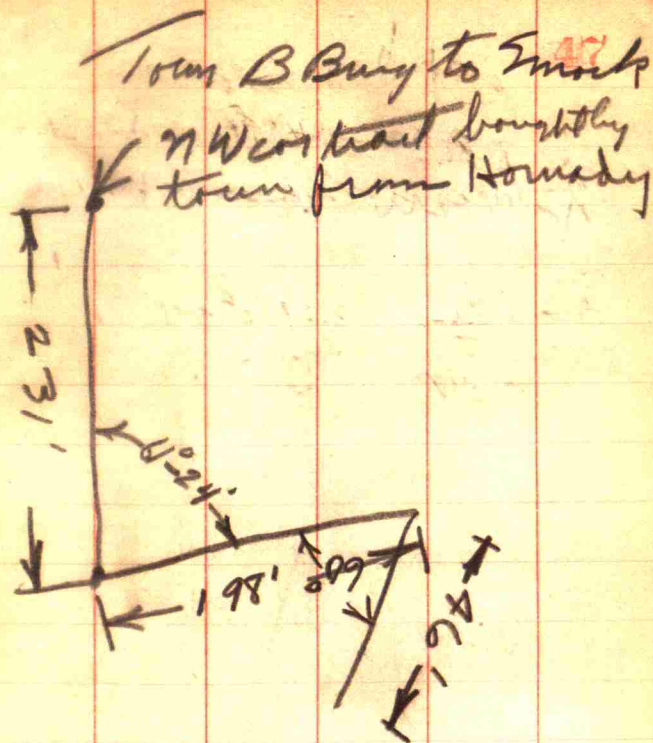 47
Town B Burg to Smock
N W cor tract bought by
town from Hornaday
231'
198'
46'